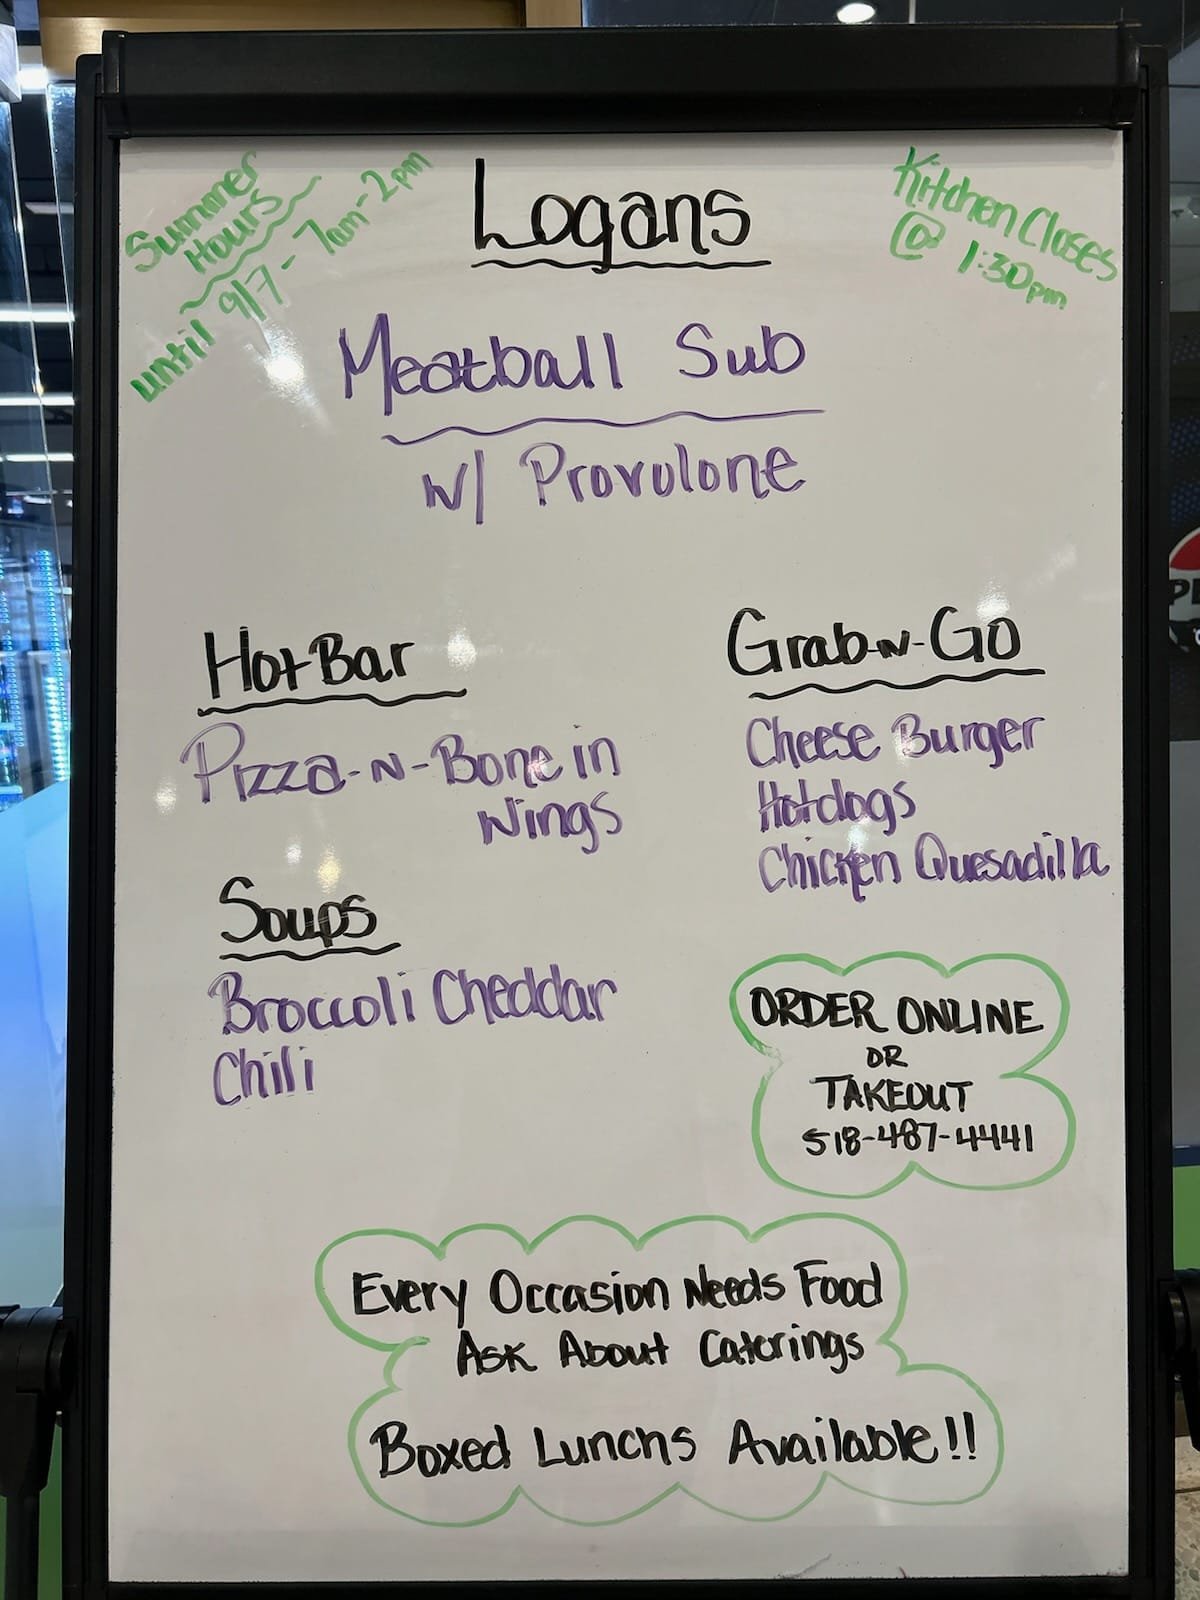 Summer
Hours
until 9/7 - 7am-2pm
Logans
Kitchen Closes
@ 1:30pm
Meatball Sub
w/ Provolone
Hot Bar
Pizza-N-Bone in
Wings
Soups
Broccoli Cheddar
Chili
Grab-N-Go
Cheese Burger
Hotdogs
Chicken Quesadilla
ORDER ONLINE
OR
TAKEOUT
518-487-4441
Every Occasion Needs Food
Ask About Caterings
Boxed Lunchs Available!!